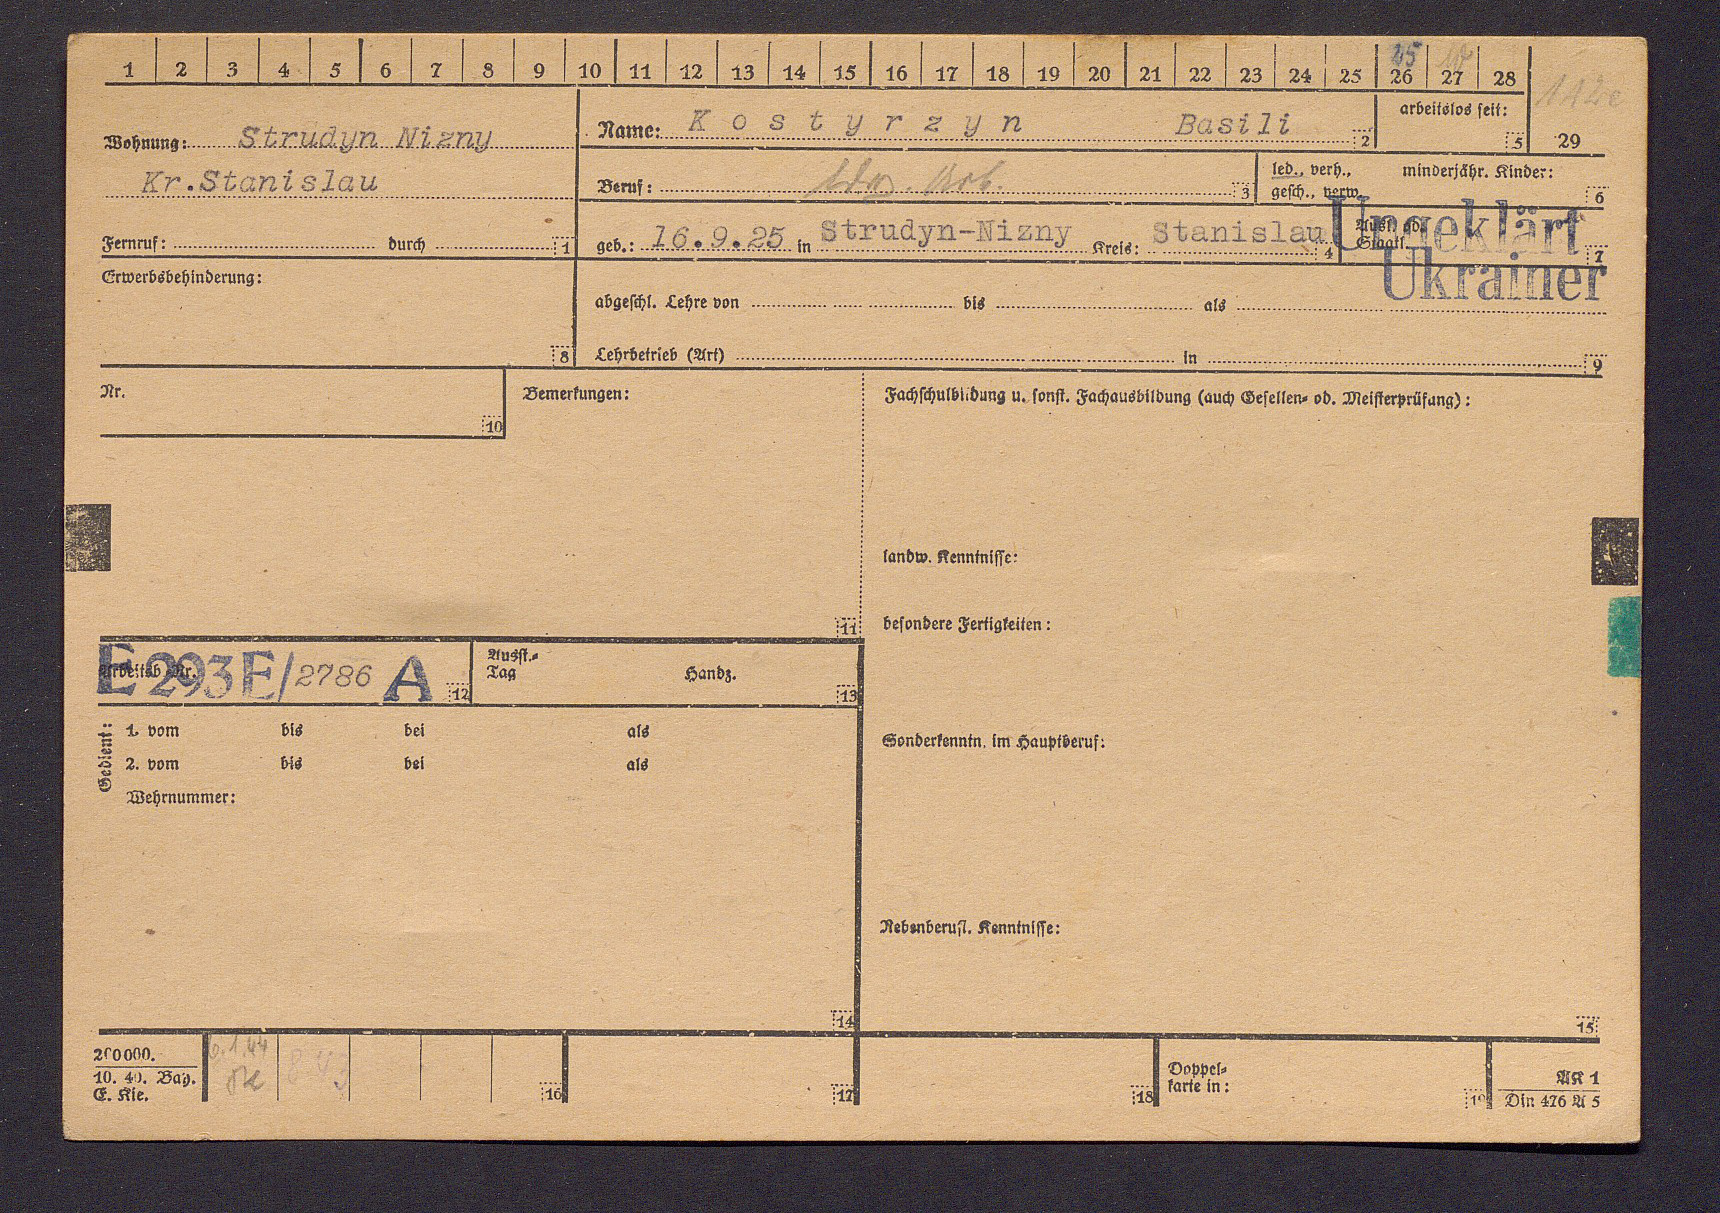 1 2 3 4 5 6 7 8 9 10 11 12 13 14 15 16 17 18 19 20 21 22 23 24 25 26 27 28
25
112e
Wohnung: Strudyn Nizny
Kr.Stanislau
Name: Kostyrzyn Basili 2
arbeitslos seit:
5 29
Beruf: ldw. Arb. 3
led., verh.,
gesch., verw.
minderjähr. Kinder:
6
Fernruf: durch 1
geb.: 16.9.25 in Strudyn-Nizny Kreis: Stanislau 4
Ausl. od.
Staatl.
7
Ungeklärt
Ukrainer
Erwerbsbehinderung:
8
abgeschl. Lehre von bis als
Lehrbetrieb (Art) in 9
Nr.
10
Bemerkungen:
11
Fachschulbildung u. sonst. Fachausbildung (auch Gesellen- od. Meisterprüfung):
landw. Kenntnisse:
besondere Fertigkeiten:
Sonderkenntn. im Hauptberuf:
Nebenberufl. Kenntnisse:
15
Arbeitsb. Nr.
E 293 E/2786 A 12
Ausst.-
Tag
Handz.
13
Gedient:
1. vom bis bei als
2. vom bis bei als
Wehrnummer:
14
200000.
10. 40. Bay.
E. Kie.
6.1.44
16 17 18
Doppel-
karte in:
19
AK 1
Din 476 A 5